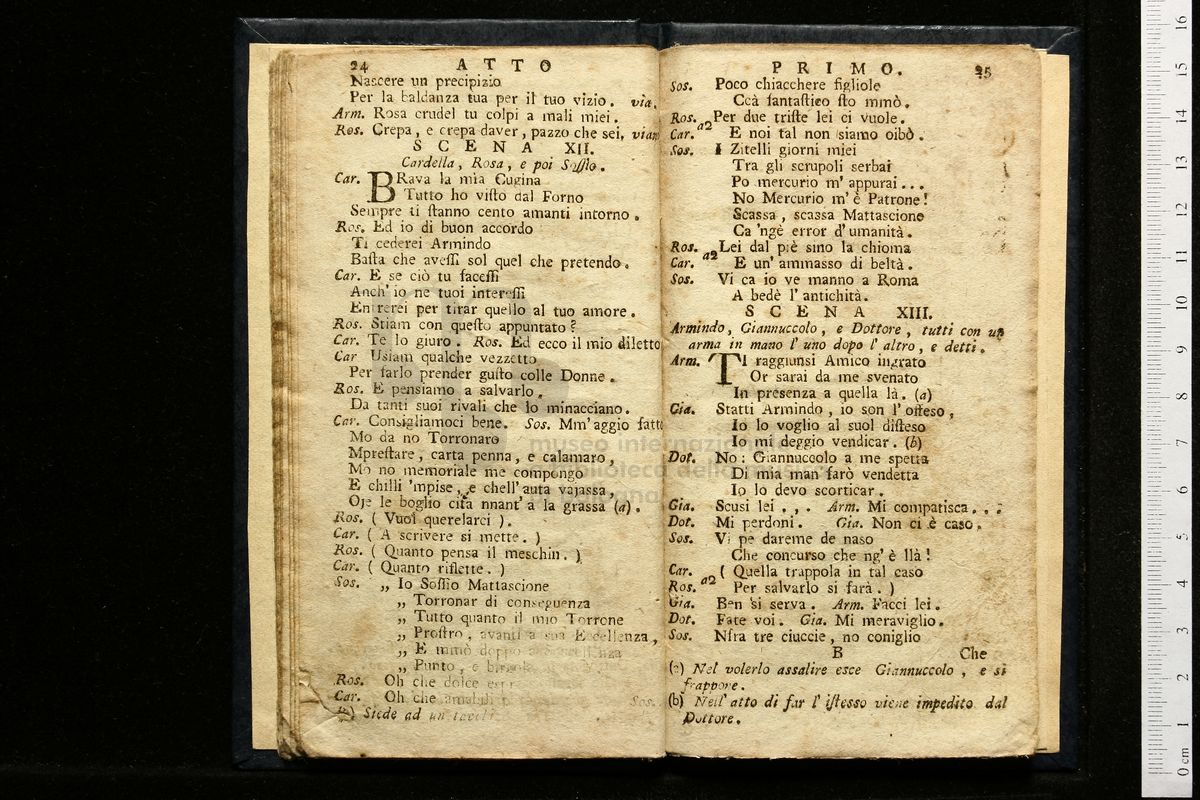 24 ATTO
Nascere un precipizio
Per la baldanza tua per il tuo vizio. via.
Arm. Rosa crudel tu colpi a mali miei.
Ros. Crepa, e crepa daver, pazzo che sei, viano
SCENA XII.
Cardella, Rosa, e poi Sossio.
Car. BRava la mia Cugina
Tutto ho visto dal Forno
Sempre ti stanno cento amanti intorno.
Ros. Ed io di buon accordo
Ti cederei Armindo
Basta che avessi sol quel che pretendo.
Car. E se ciò tu facessi
Anch' io ne tuoi interessi
Entrerei per tirar quello al tuo amore.
Ros. Stiam con questo appuntato?
Car. Te lo giuro. Ros. Ed ecco il mio diletto
Car Usiam qualche vezzetto
Per farlo prender gusto colle Donne.
Ros. E pensiamo a salvarlo.
Da tanti suoi rivali che lo minacciano.
Car. Consigliamoci bene. Sos. Mm' aggio fatto
Mo da no Torronaro
Mprestare, carta penna, e calamaro,
Mo no memoriale me compongo
E chilli 'mpise, e chell' auta vajassa,
Oje le boglio cità nnant' a la grassa (a).
Ros. ( Vuol querelarci ).
Car. ( A scrivere si mette. )
Ros. ( Quanto pensa il meschin. )
Car. ( Quanto riflette. )
Sos. „ Io Sossio Mattascione
„ Torronar di conseguenza
„ Tutto quanto il mio Torrone
„ Prostro, avanti a sua Eccellenza,
„ E mmò doppo
„ Punto, e
Ros. Oh che dolce
Car. Oh che amabil
Sos.
(a) Siede ad un tavoli
PRIMO. 25
Sos. Poco chiacchere figliole
Ccà fantastico sto mmò.
Ros. Per due triste lei ci vuole.
Car. a2 E noi tal non siamo oibò.
Sos. I Zitelli giorni miei
Tra gli scrupoli serbai
Po mercurio m' appurai...
No Mercurio m' è Patrone!
Scassa, scassa Mattascione
Ca 'ngè error d' umanità.
Ros. Lei dal piè sino la chioma
Car. a2 E un' ammasso di beltà.
Sos. Vi ca io ve manno a Roma
A bedè l' antichità.
SCENA XIII.
Armindo, Giannuccolo, e Dottore, tutti con un
arma in mano l' uno dopo l' altro, e detti.
Arm. TI raggiunsi Amico ingrato
Or sarai da me svenato
In presenza a quella là. (a)
Gia. Statti Armindo, io son l' offeso,
Io lo voglio al suol disteso
Io mi deggio vendicar. (b)
Dot. No: Giannuccolo a me spetta
Di mia man farò vendetta
Io lo devo scorticar.
Gia. Scusi lei... Arm. Mi compatisca...
Dot. Mi perdoni. Gia. Non ci è caso.
Sos. Vi pe dareme de naso
Che concurso che ng' è llà!
Car. ( Quella trappola in tal caso
Ros. a2 Per salvarlo si farà. )
Gia. Ben si serva. Arm. Facci lei.
Dot. Fate voi. Gia. Mi meraviglio.
Sos. Nfra tre ciuccie, no coniglio
B Che
(a) Nel volerlo assalire esce Giannuccolo, e si
frappone.
(b) Nell' atto di far l' istesso viene impedito dal
Dottore.
museo internazionale
biblioteca della musica
di bologna